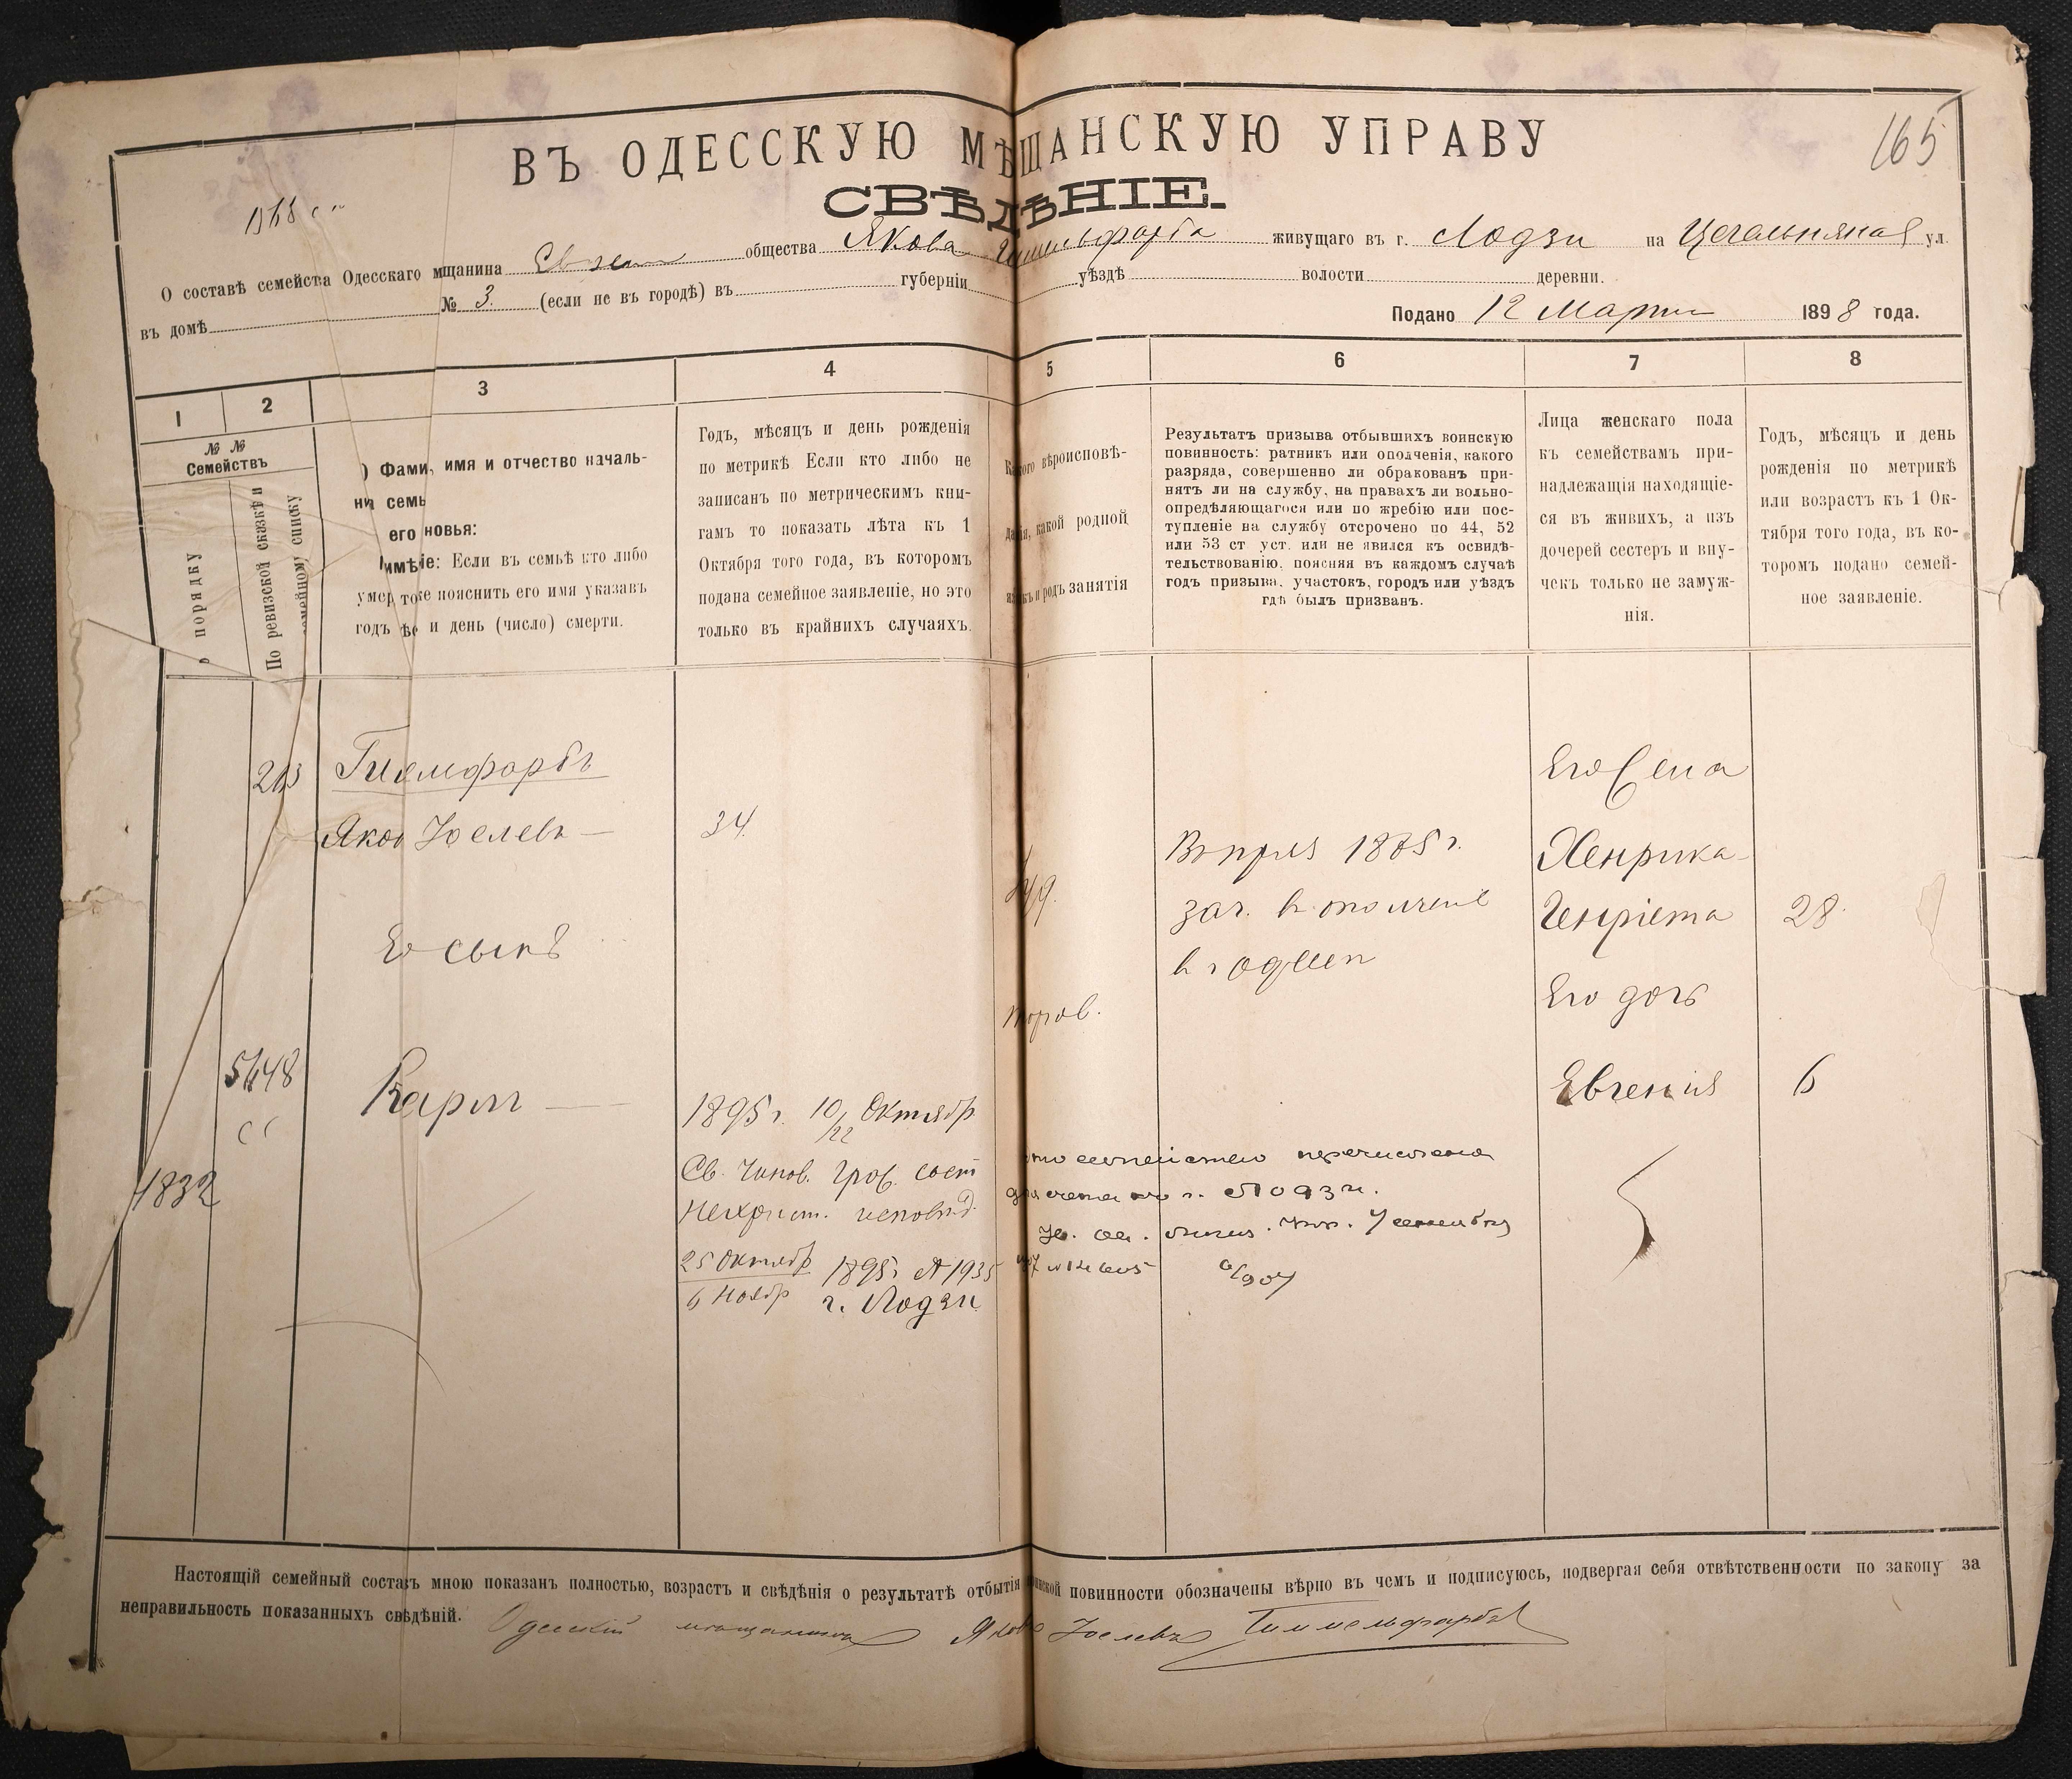 165
ВЪ ОДЕССКУЮ МѢЩАНСКУЮ УПРАВУ
СВѢДѢНІЕ.
О составѣ семейства Одесскаго мщанина общества Якова Гимельфарба живущаго въ г. Лодзи на Цегельняная ул.
въ домѣ № 3. (если не въ городѣ) въ губерніи уѣздѣ волости деревни.
Подано 12 Марта 1898 года.
1
2
3
4
5
6
7
8
№ №
Семействъ
порядку
По ревизской сказкѣ и
семейному списку
) Фами, имя и отчество началь-
ни семь
его новья:
имѣіе: Если въ семьѣ кто либо
умер то же пояснить его имя указавъ
годъ ѣс и день (число) смерти.
Годъ, мѣсяцъ и день рожденія
по метрикѣ Если кто либо не
записанъ по метрическимъ кни-
гамъ то показать лѣта къ 1
Октября того года, въ которомъ
подана семейное заявленіе, но это
только въ крайнихъ случаяхъ.
Какого вѣроисповѣ-
данія, какой родной
языкъ и родъ занятія
Результатъ призыва отбывшихъ воинскую
повинность: ратникъ или ополченія, какого
разряда, совершенно ли обракованъ при-
нятъ ли на службу, на правахъ ли вольно-
опредѣляющагося или по жребію или пос-
тупленіе на службу отсрочено по 44, 52
или 53 ст уст. или не явился къ освидѣ-
тельствованію, поясняя въ каждомъ случаѣ
годъ призыва, участокъ, городъ или уѣздъ
гдѣ былъ призванъ.
Лица женскаго пола
къ семействамъ при-
надлежащія находящіе-
ся въ живихъ, а изъ
дочерей сестеръ и вну-
чекъ только не замуж-
нія.
Годъ, мѣсяцъ и день
рожденія по метрикѣ
или возрастъ къ 1 Ок-
тября того года, въ ко-
торомъ подано семей-
ное заявленіе.
Гимлфарбъ
Яков Іоселевъ
34
Его сынъ
Іуд.
торов.
1885 г.
зач. в ополченіе
в г Одессе
Его Жена
Хенрика
Генріета
28
Его дочь
Евгенія
6
5648
Карлъ
1895 г. 10/22 Октябр
Св. Чинов. Граж. сост
Нехрист. исповѣд.
25 Октябр
6 Ноябр
1895 г № 1935
г. Лодзи
1832
семейство перечислено
г. Лодзи.
Настоящій семейный составъ мною показанъ полностью, возрастъ и свѣдѣнія о результатѣ отбытія воинской повинности обозначены вѣрно въ чемъ и подписуюсь, подвергая себя отвѣтственности по закону за
неправильность показанныхъ свѣдѣній. Одесскій мѣщанинъ Яковъ Іоселевъ Гиммельфарбъ